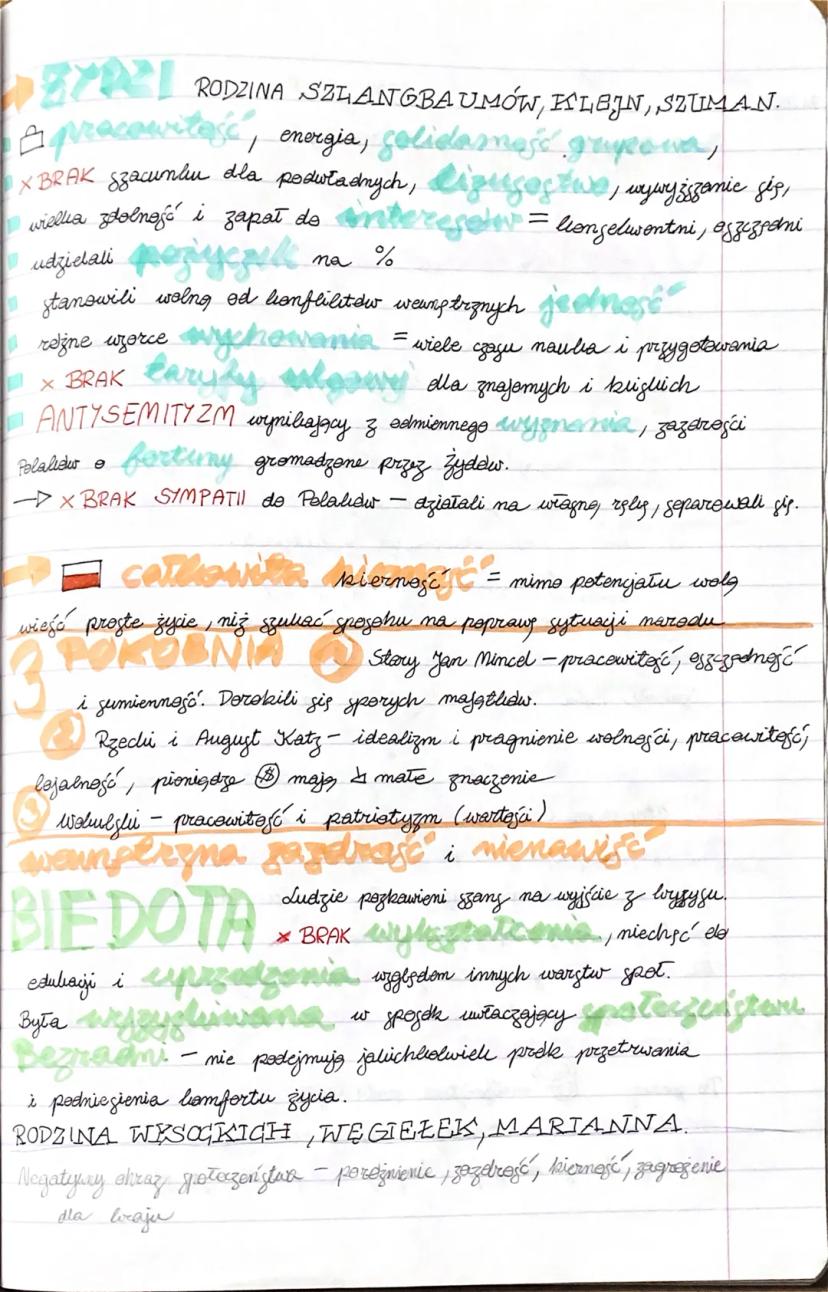 → ŻYDZI RODZINA SZLANGBAUMÓW, KLEJN, SZUMAN.
pracowitość, energia, solidarność grupowa,
× BRAK szacunku dla podwładnych, lizusostwo, wywyższanie się,
wielka zdolność i zapał do interesów = konsekwentni, oszczędni
udzielali pożyczek na %
stanowili wolną od konfliktów wewnętrznych jedność
różne wzorce wychowania = wiele czasu nauka i przygotowania
× BRAK taryfy ulgowej dla znajomych i bliskich
ANTYSEMITYZM wynikający z odmiennego wyznania, zazdrości
Polaków o fortuny gromadzone przez Żydów.
→ × BRAK SYMPATII do Polaków – działali na własną rękę, separowali się.
→ całkowita bierność bierność = mimo potencjału wolą
wieść proste życie, niż szukać sposobu na poprawę sytuacji narodu
3 POKOLENIA 1 Stary Jan Mincel – pracowitość, oszczędność
i sumienność. Dorobili się sporych majątków.
2 Rzecki i August Katz – idealizm i pragnienie wolności, pracowitość,
lojalność, pieniądze $ mają ↘ małe znaczenie
3 Wokulski – pracowitość i patriotyzm (wartości)
wewnętrzna zazdrość i nienawiść
BIEDOTA Ludzie pozbawieni szans na wyjście z kryzysu.
× BRAK wykształcenia, niechęć do
edukacji i uprzedzenia względem innych warstw społ.
Była wyzyskiwana w sposób uwłaczający społeczeństwu
Bezradni – nie podejmują jakichkolwiek prób przetrwania
i podniesienia komfortu życia.
RODZINA WYSOCKICH, WĘGIEŁEK, MARIANNA.
Negatywny obraz społeczeństwa – poróżnienie, zazdrość, bierność, zagrożenie
dla kraju